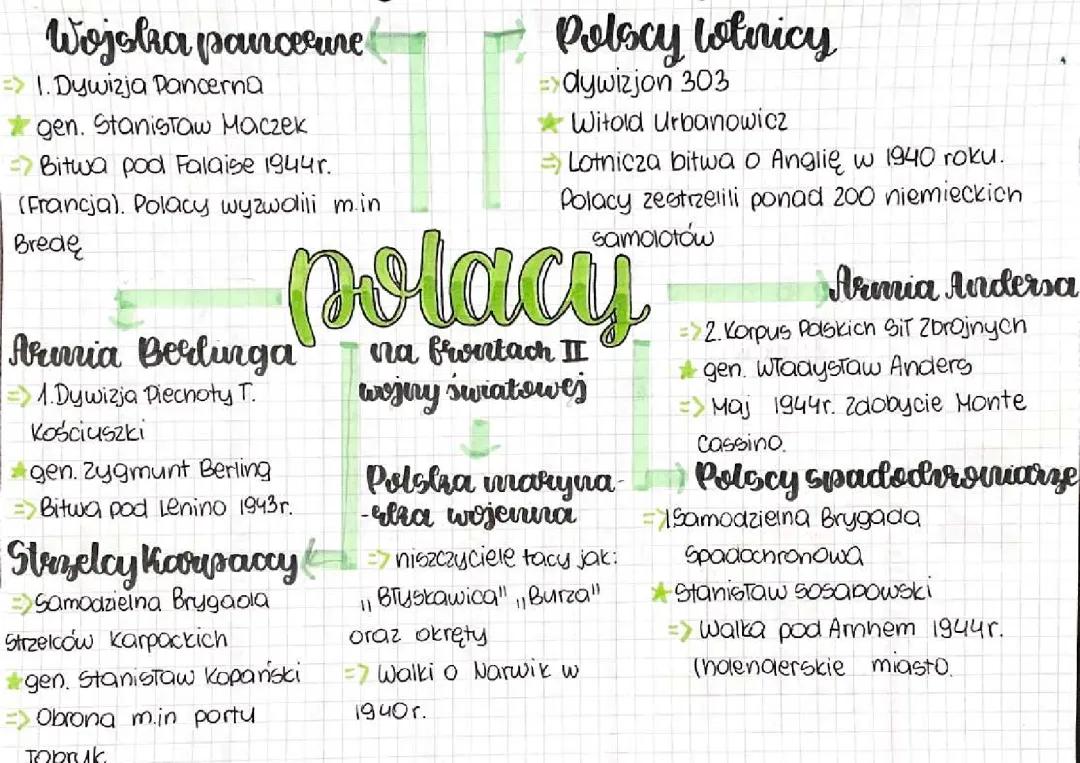 Wojska pancerne
=> 1. Dywizja Pancerna
gen. Stanisław Maczek
=> Bitwa pod Falaise 1944r.
(Francja). Polacy wyzwolili m.in
Bredę
Polscy lotnicy
=> dywizjon 303
Witold Urbanowicz
=> Lotnicza bitwa o Anglię w 1940 roku.
Polacy zestrzelili ponad 200 niemieckich
samolotów
polacy
na frontach II
wojny światowej
Armia Andersa
=> 2. Korpus Polskich Sił Zbrojnych
gen. Władysław Anders
=> Maj 1944r. zdobycie Monte
Cassino.
Armia Berlinga
=> 1. Dywizja Piechoty T.
Kościuszki
gen. Zygmunt Berling
=> Bitwa pod Lenino 1943r.
Polska maryna-
-rka wojenna
=> niszczyciele tacy jak:
,,Błyskawica" ,,Burza"
oraz okręty
=> Walki o Narwik w
1940r.
Polscy spadochroniarze
=> 1 Samodzielna Brygada
Spadochronowa
Stanisław Sosabowski
=> Walka pod Arnhem 1944r.
(holenderskie miasto.
Strzelcy Karpaccy
=> Samodzielna Brygada
Strzelców Karpackich
gen. Stanisław Kopański
=> Obrona m.in portu
Tobruk